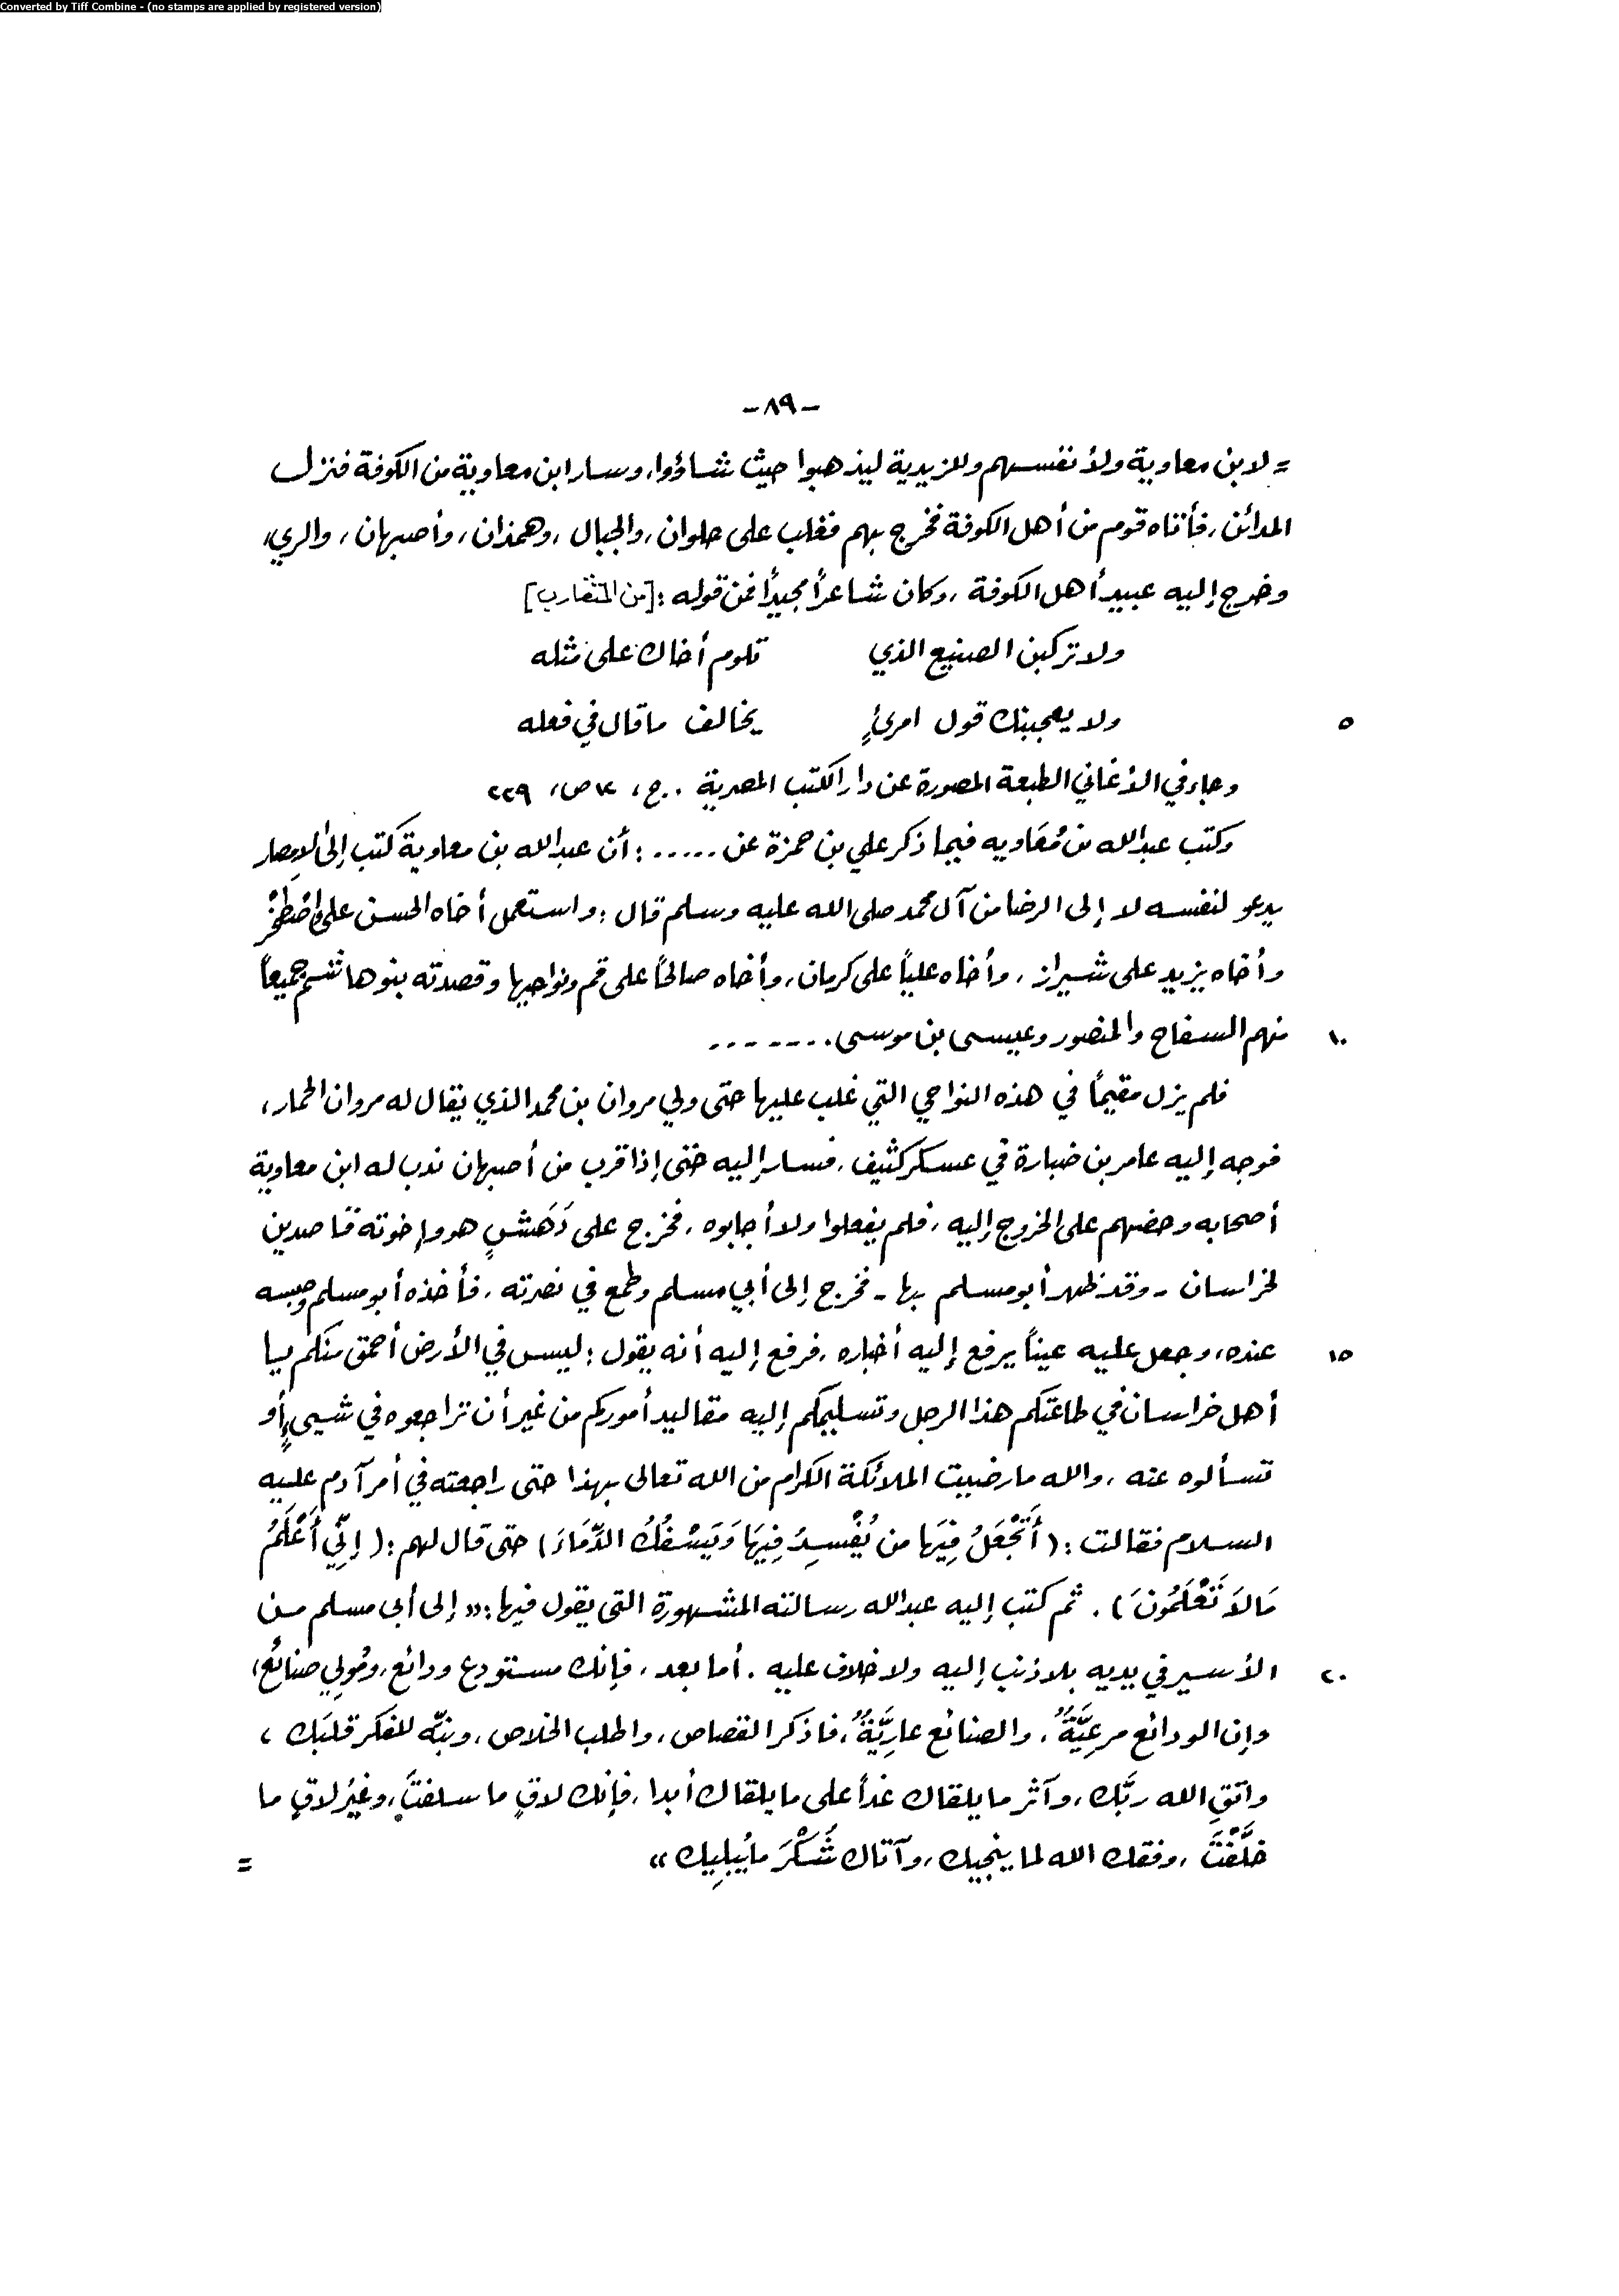 Converted by Tiff Combine - (no stamps are applied by registered version)
-٨٩-
= لابن معاوية ولأنفسهم وللزيدية ليذهبوا حيث شاؤوا، وسار ابن معاوية من الكوفة فنزل
المدائن، فأتاه قوم من أهل الكوفة فخرج بهم فغلب على حلوان، والجبال، وهمذان، وأصبهان، والري،
وخرج إليه عبيد أهل الكوفة، وكان شاعراً مجيداً فمن قوله: [من المتقارب]
ولا تركبن الصنيع الذي تلوم أخاك على مثله
٥ ولا يعجبنك قول امرئٍ يخالف ما قال في فعله
وجاء في الأغاني الطبعة المصورة عن دار الكتب المصرية. ج، ١٢ ص، ٢٢٩
وكتب عبدالله بن مُعَاويه فيما ذكر علي بن حمزة عن .....: أن عبدالله بن معاوية كتب إلى الأمصار
يدعو لنفسه لا إلى الرضا من آل محمد صلى الله عليه وسلم قال: واستعمل أخاه الحسن على إصْطَخْر
وأخاه يزيد على شيراز، وأخاه علياً على كرمان، وأخاه صالحاً على قم ونواحيها وقصدته بنو هاشم جميعاً
١٠ منهم السفاح والمنصور وعيسى بن موسى.......
فلم يزل مقيماً في هذه النواحي التي غلب عليها حتى ولي مروان بن محمد الذي يقال له مروان الحمار،
فوجه إليه عامر بن ضبارة في عسكر كثيف، فسار إليه حتى إذا قرب من أصبهان ندب له ابن معاوية
أصحابه وحضهم على الخروج إليه، فلم يفعلوا ولا أجابوه، فخرج على دَهَشٍ هو وإخوته قاصدين
لخراسان - وقد ظهر أبو مسلم بها - فخرج إلى أبي مسلم وطمع في نصرته، فأخذه أبو مسلم وحبسه
١٥ عنده، وجعل عليه عيناً يرفع إليه أخباره، فرفع إليه أنه يقول: ليس في الأرض أحمق منكم يا
أهل خراسان في طاعتكم هذا الرجل وتسليمكم إليه مقاليد أموركم من غير أن تراجعوه في شيىءٍ أو
تسألوه عنه، والله ما رضيت الملائكة الكرام من الله تعالى بهذا حتى راجعته في أمر آدم عليه
السلام فقالت: (أَتَجْعَلُ فِيَها من يُفْسِدُ فِيَها وَيَسْفُكُ الدِّمَاءَ) حتى قال لهم: (إنِّي أَعْلَمُ
مَالاَ تَعْلَمُونَ). ثم كتب إليه عبدالله رسالته المشهورة التي يقول فيها: «إلى أبي مسلم من
٢٠ الأسير في يديه بلا ذنب إليه ولا خلاف عليه. أما بعد، فإنك مستودع ودائع، ومُولِي صنائع،
وإن الودائع مرعِيَّةٌ، والصنائع عارِيَّةٌ، فاذكر القصاص، واطلب الخلاص، ونبّه للفكر قلبَك،
واتقِ الله ربَّك، وآثر ما يلقاك غداً على ما يلقاك أبدا، فإنك لاقٍ ما سلفتَ، وغيْر لاقٍ ما
خلَّفْتَ، وفقك الله لما ينجيك، وآتاك شُكْرَ مايُبلِيك» =